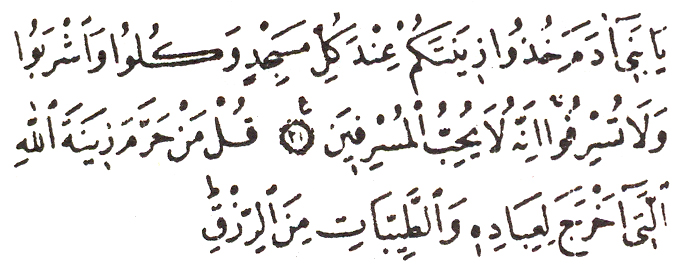 يَا بَنِىٓ اٰدَمَ خُذُوا زِينَتَكُمْ عِنْدَ كُلِّ مَسْجِدٍ وَكُلُوا وَاَشْرَبُوا
وَلَا تُسْرِفُوٓا اِنَّهُ لَا يُحِبُّ الْمُسْرِفِينَ ﴿٣١﴾ قُلْ مَنْ حَرَّمَ زِينَةَ ٱللّٰهِ
ٱلَّتِىٓ اَخْرَجَ لِعِبَادِهِ وَٱلطَّيِّبَاتِ مِنَ ٱلرِّزْقِ ۚ